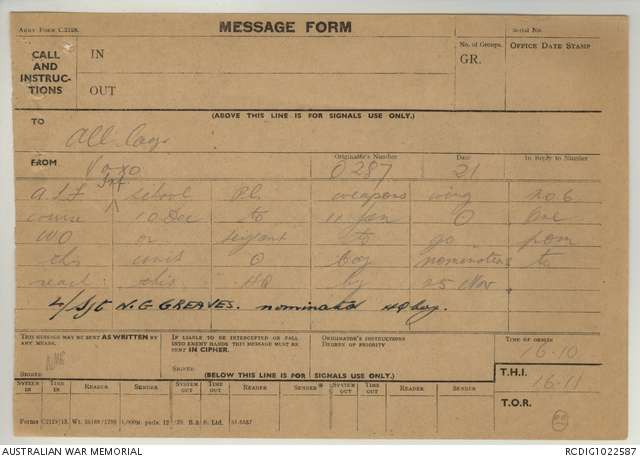 ARMY FORM C.2128.
MESSAGE FORM
Serial No.
CALL AND INSTRUCTIONS
IN
OUT
No. of Groups.
GR.
OFFICE DATE STAMP
(ABOVE THIS LINE IS FOR SIGNALS USE ONLY.)
TO
All Coys
FROM
Originator's Number
Date
In Reply to Number
0287
21
Inf
school
Pl
weapons
wing
no 6
course
10 Dec
to
11 Jan
O
One
WO
or
sergeant
to
go
from
this
unit
O
Coy
nominations
to
reach
this
HQ
by
25 Nov
L/Sgt N.G GREAVES. nominated HQ Coy.
THIS MESSAGE MAY BE SENT AS WRITTEN BY ANY MEANS.
IF LIABLE TO BE INTERCEPTED OR FALL INTO ENEMY HANDS THIS MESSAGE MUST BE SENT IN CIPHER.
ORIGINATOR'S INSTRUCTIONS
DEGREE OF PRIORITY
TIME OF ORIGIN
16-10
SIGNED
SIGNED
(BELOW THIS LINE IS FOR SIGNALS USE ONLY.)
T.H.I.
16-11
SYSTEM IN
TIME IN
READER
SENDER
SYSTEM OUT
TIME OUT
READER
SENDER
SYSTEM OUT
TIME OUT
READER
SENDER
T.O.R.
AUSTRALIAN WAR MEMORIAL
RCDIG1022587